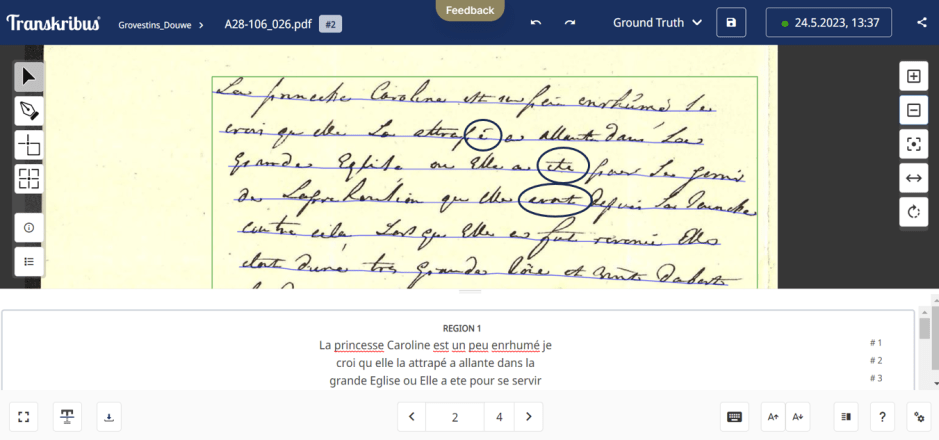 Transkribus
Grovestins_Douwe >
A28-106_026.pdf
#2
Feedback
Ground Truth
24.5.2023, 13:37
La princesse Caroline est un peu enrhumé Je
crois qu elle La attrapé a allante dans La
grande Eglise ou Elle a ete pour Se servir
de
que elle avoit depuis La
contre cela Lors que Elle es fut revenue Elle
etoit dune tres grande Joie et d abord
REGION 1
La princesse Caroline est un peu enrhumé je
# 1
croi qu elle la attrapé a allante dans la
# 2
grande Eglise ou Elle a ete pour se servir
# 3
2
4
A
A
?